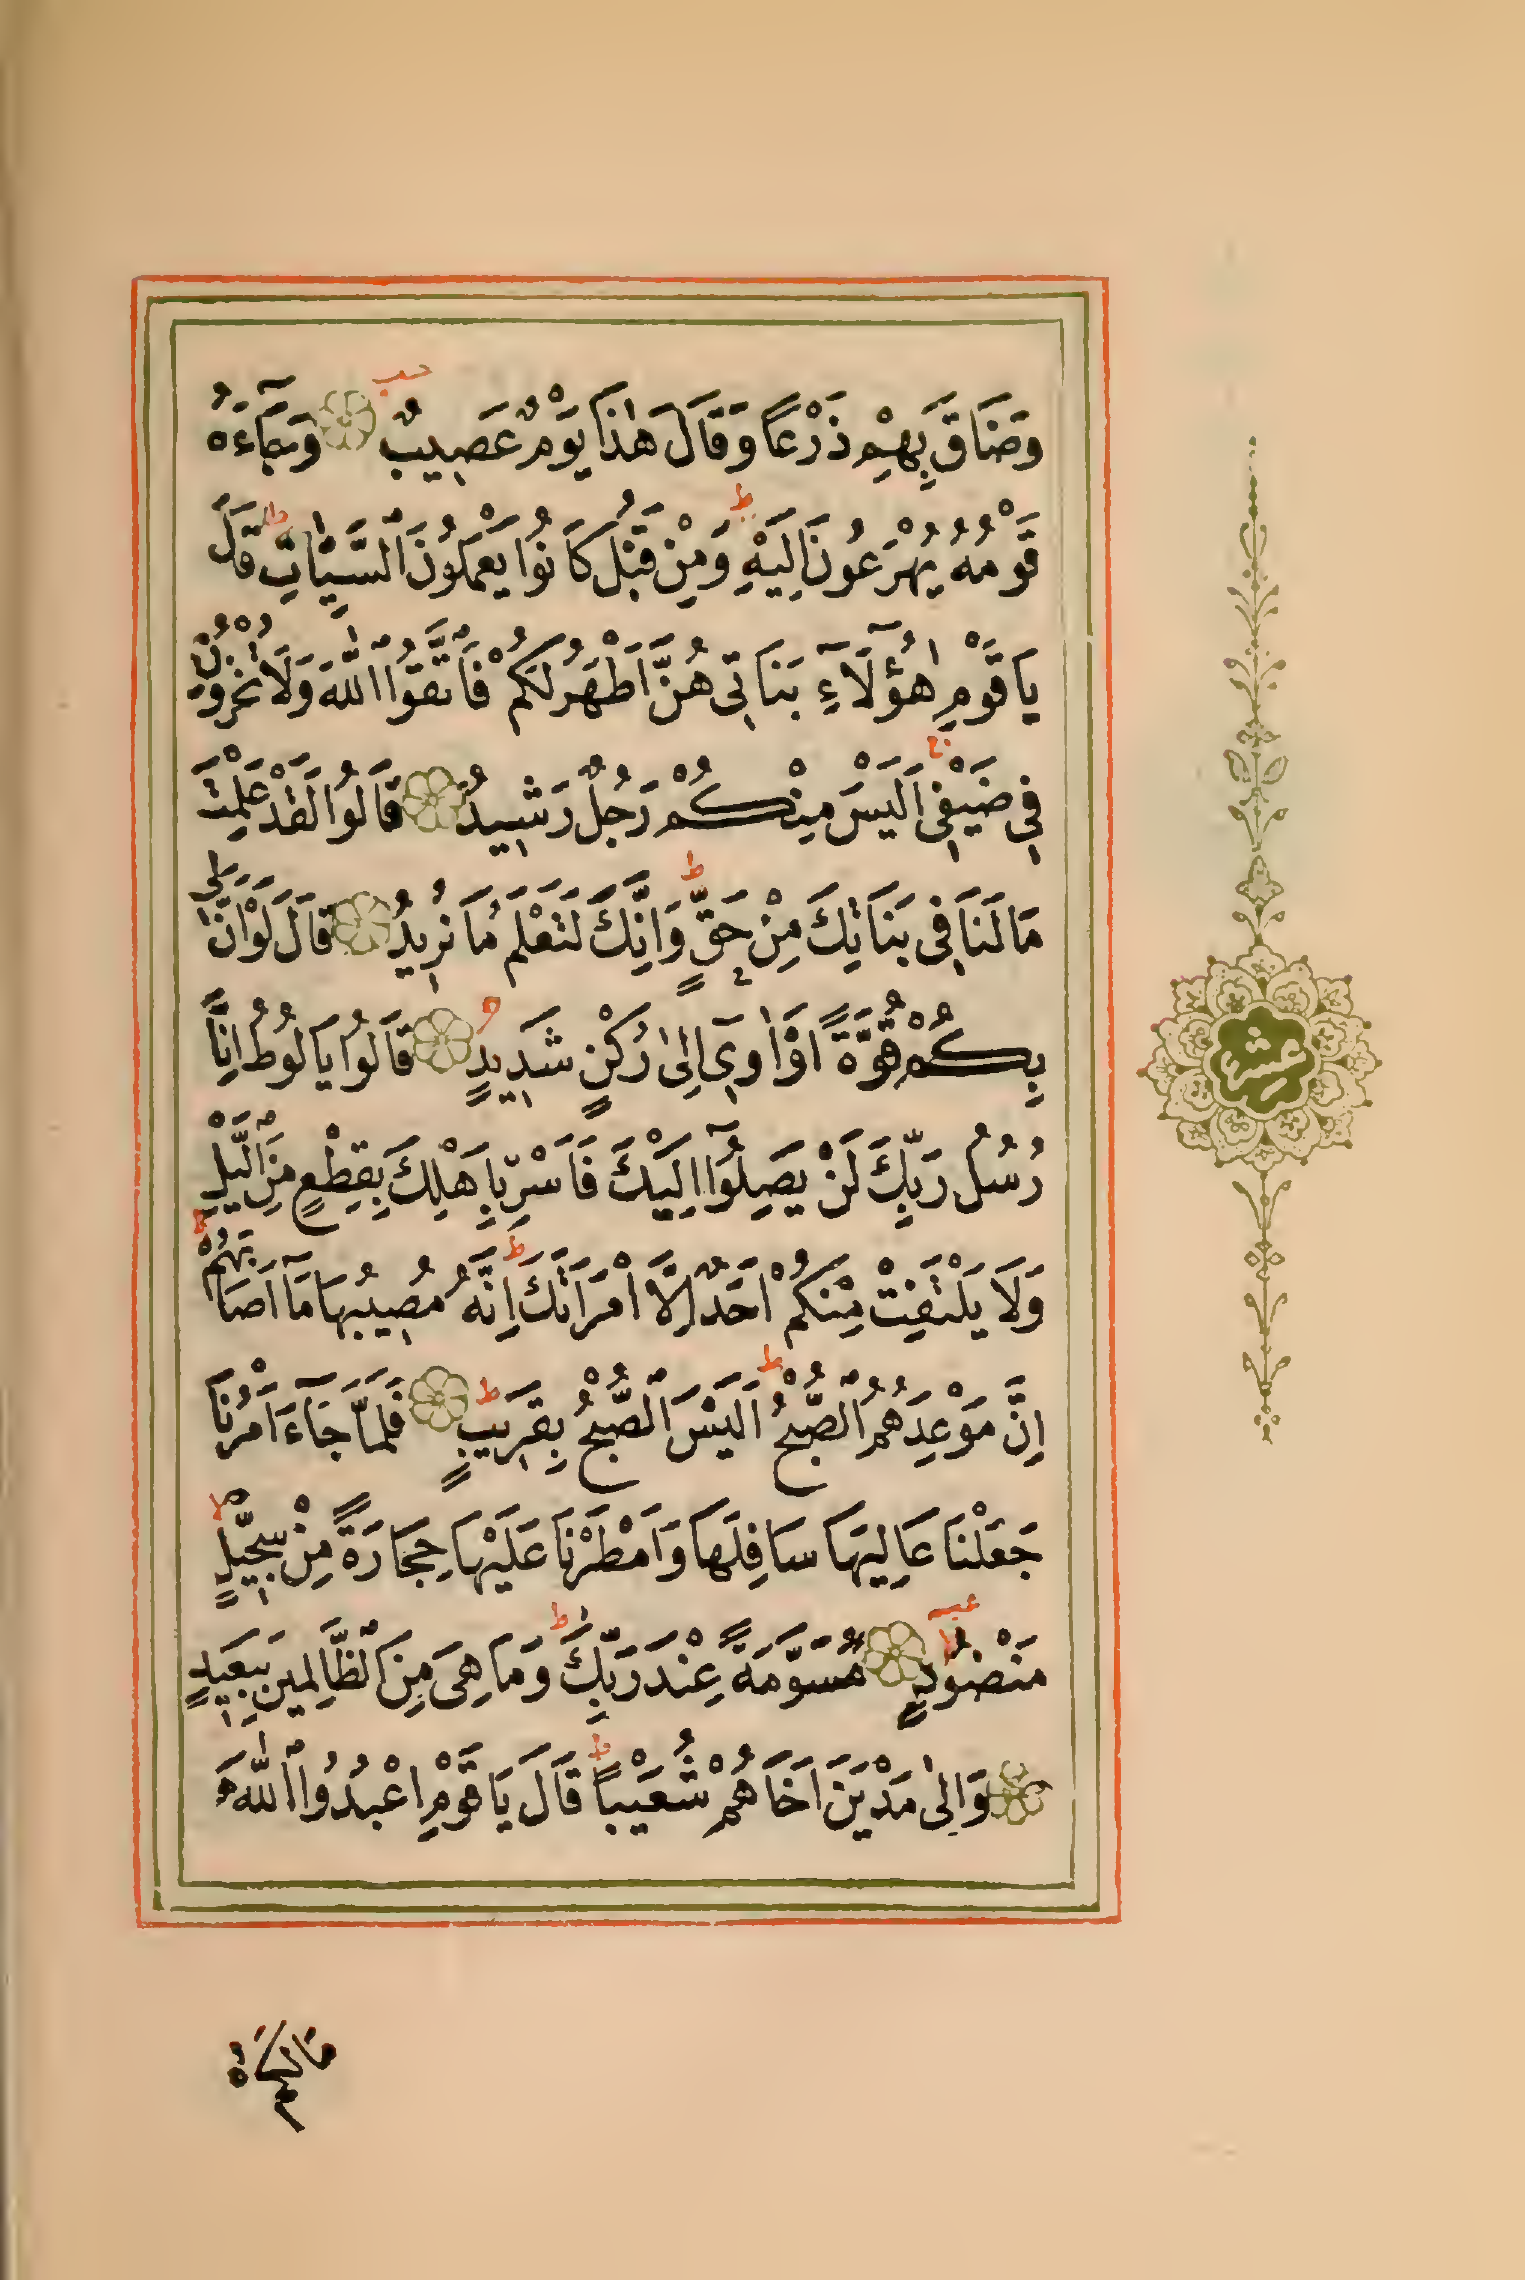 وَضَاقَ بِهِمْ ذَرْعًا وَقَالَ هٰذَا يَوْمٌ عَصِيبٌ وَجَٓاءَهُ
قَوْمُهُ يُهْرَعُونَ اِلَيْهِ وَمِنْ قَبْلُ كَانُوا يَعْمَلُونَ السَّيِّاٰتِ قَالَ
يَا قَوْمِ هٰٓؤُلَٓاءِ بَنَاتِي هُنَّ اَطْهَرُ لَكُمْ فَاتَّقُوا اللّٰهَ وَلَا تُخْزُونِ
فِي ضَيْفِي اَلَيْسَ مِنْكُمْ رَجُلٌ رَشِيدٌ قَالُوا لَقَدْ عَلِمْتَ
مَا لَنَا فِي بَنَاتِكَ مِنْ حَقٍّ وَاِنَّكَ لَتَعْلَمُ مَا نُرِيدُ قَالَ لَوْ اَنَّ لِي
بِكُمْ قُوَّةً اَوْ اٰوِٓي اِلٰى رُكْنٍ شَدِيدٍ قَالُوا يَا لُوطُ اِنَّا
رُسُلُ رَبِّكَ لَنْ يَصِلُٓوا اِلَيْكَ فَاَسْرِ بِاَهْلِكَ بِقِطْعٍ مِنَ الَّيْلِ
وَلَا يَلْتَفِتْ مِنْكُمْ اَحَدٌ اِلَّا امْرَاَتَكَ اِنَّهُ مُصِيبُهَا مَٓا اَصَابَهُمْ
اِنَّ مَوْعِدَهُمُ الصُّبْحُ اَلَيْسَ الصُّبْحُ بِقَرِيبٍ فَلَمَّا جَٓاءَ اَمْرُنَا
جَعَلْنَا عَالِيَهَا سَافِلَهَا وَاَمْطَرْنَا عَلَيْهَا حِجَارَةً مِنْ سِجِّيلٍ
مَنْضُودٍ مُسَوَّمَةً عِنْدَ رَبِّكَ وَمَا هِيَ مِنَ الظَّالِمِينَ بِبَعِيدٍ
وَاِلٰى مَدْيَنَ اَخَاهُمْ شُعَيْبًا قَالَ يَا قَوْمِ اعْبُدُوا اللّٰهَ
مَا لَكُمْ